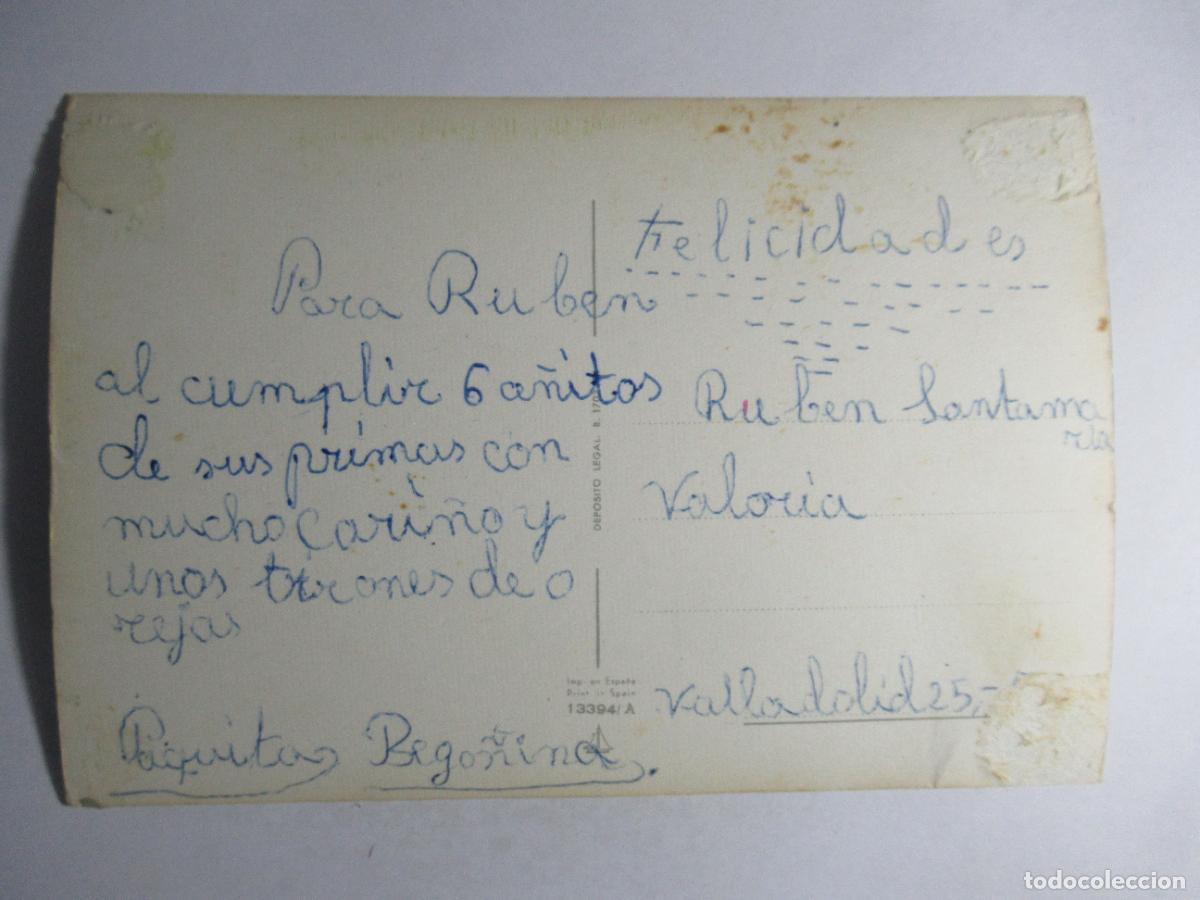 Para Ruben
al cumplir 6 añitos
de sus primas con
mucho cariño y
unos tirones de o
rejas
Paquita Begoñina.
Felicidades
Ruben Santama
ria
Valoria
Valladolid 25,-
DEPOSITO LEGAL. B. 170
Imp. en España
Print in Spain
13394/A
todocoleccion